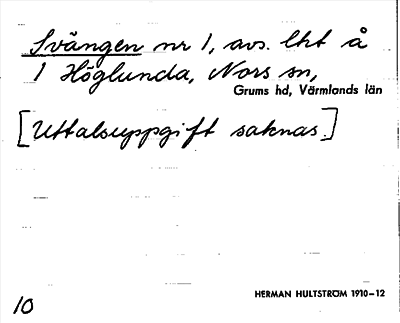 Svängen nr 1, avs. lht å
1 Höglunda, Nors sn,
Grums hd, Värmlands län
[Uttalsuppgift saknas.]
HERMAN HULTSTRÖM 1910–12
10